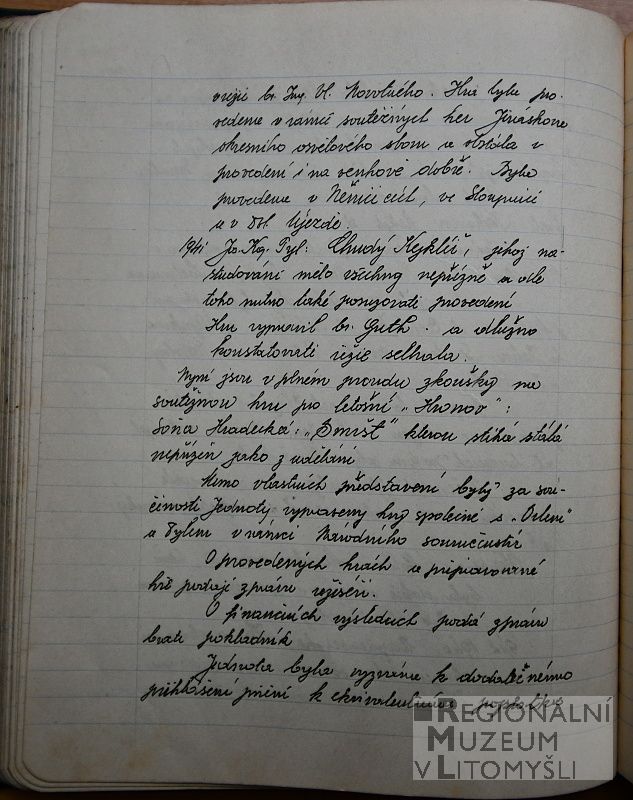 režii br. Ing. Vl. Novotného. Hra byla pro-
vedena v rámci soutěžných her Jiráskova
okresního osvětového sboru a obstála v
provedení i na venkově dobře. Byla
provedena v Němčicích, ve Sloupnici
a v Dol. Újezdě.
1941 Jo. Kaj. Tyl: Chudý Kejklíř, jehož na-
studování mělo všechny nepřízně a dle
toho nutno také posuzovati provedení
Hru vypravil br. Guth. a dlužno
konstatovati režie selhala.
Nyní jsou v plném proudu zkoušky na
soutěžnou hru pro letošní "Hronov":
Soňa Hradecká: "Smršť" kterou stíhá stálá
nepřízeň jako z udělání
Mimo vlastních představení byly za sou-
činosti Jednoty vypraveny hry společné s "Orlem"
a Tylem v rámci Národního souručenství
O provedených hrách a připravované
hře podají zprávu režiséři.
O finančních výsledcích podá zprávu
bratr pokladník
Jednota byla vyzvána k dodatečnému
přihlášení jmění k ekvivalentnímu poplatku
REGIONÁLNÍ
MUZEUM
V LITOMYŠLI